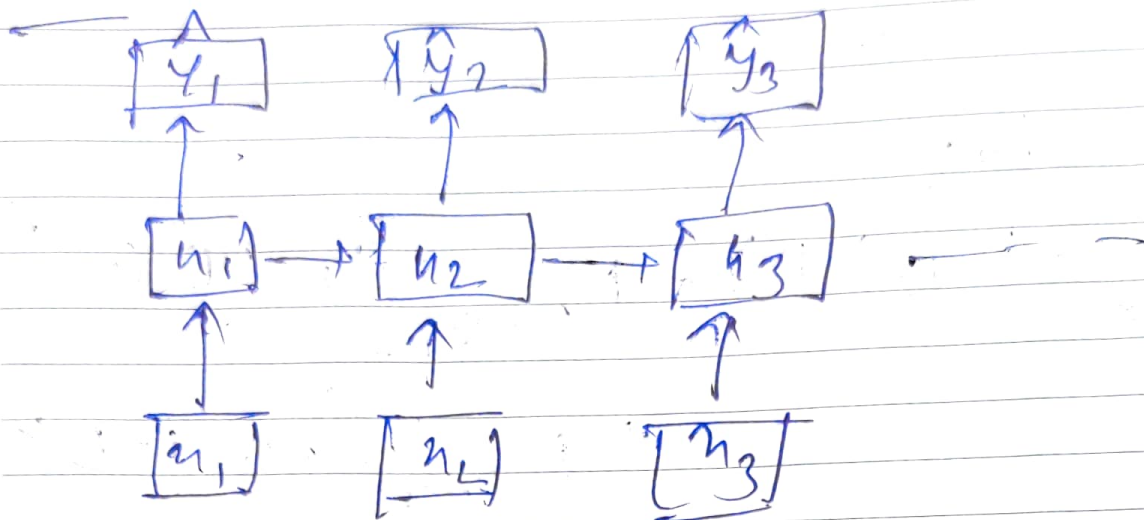 ŷ₁ ŷ₂ ŷ₃
h₁ h₂ h₃
x₁ x₂ x₃